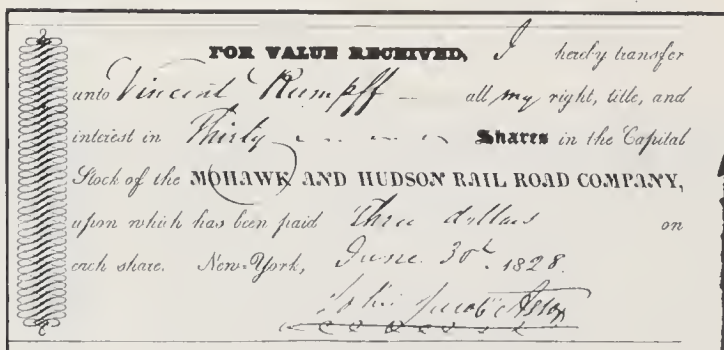 FOR VALUE RECEIVED, I hereby transfer
unto Vincent Rumpff — all my right, title, and
interest in Thirty Shares in the Capital
Stock of the MOHAWK AND HUDSON RAIL ROAD COMPANY,
upon which has been paid Three dollars on
each share. New-York, June 30th. 1828.
John Jacob Astor